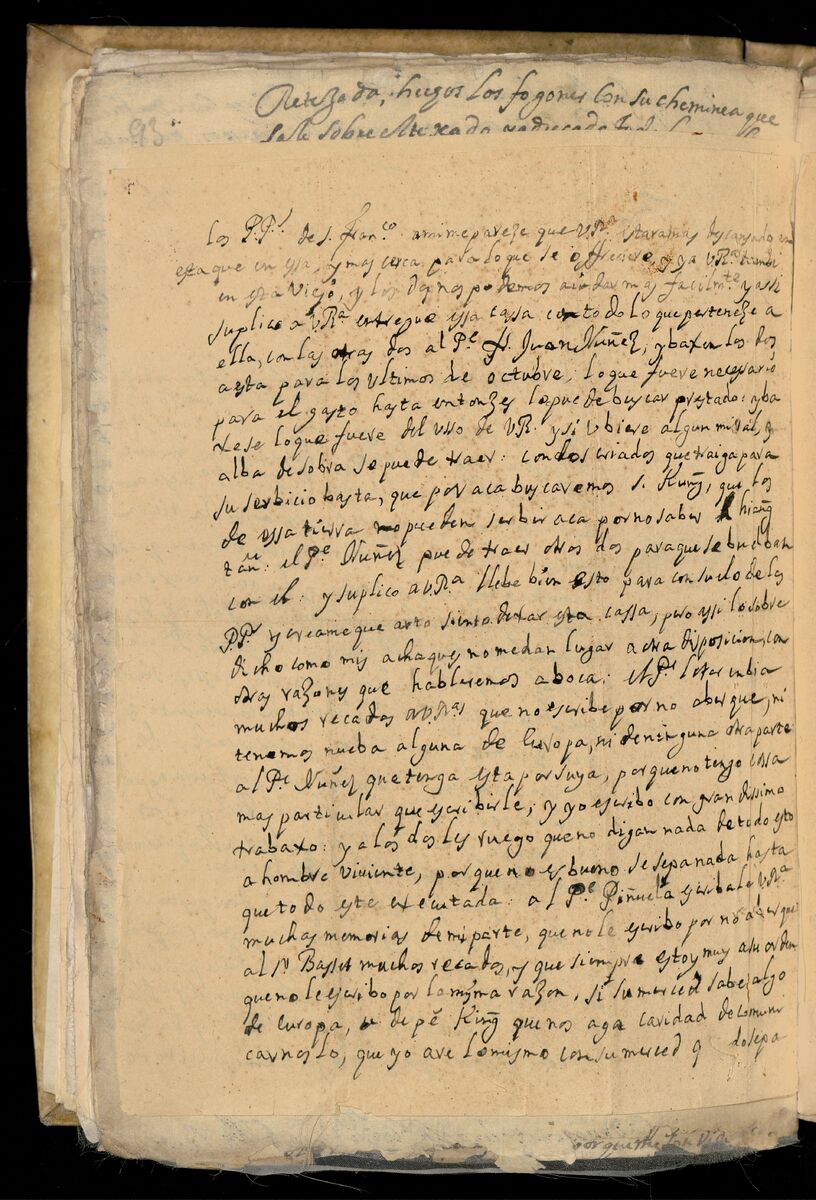 Retexada, hizos los fogones con su cheminea que
sale sobre el texado
93
los P.Pˢ de S. Franᶜᵒ. a mi me pareze que V.Rª. estara mas descansado en
esta que en essa, y mas cerca para lo que se offreciere, y ya V.Rª.
en esta viejo, y los dos nos podemos aiudar mas facilmᵗᵉ. y assi
suplico a VRª entregue essa cassa con todo lo que perteneze a
ella, con las otras dos al Pᵉ. Juan Nuñez, y baxen los dos
a esta para los ultimos de octubre, lo que fuere necessario
para el gasto hasta entonzes lo puede buscar prestado: y ba
lese lo que fuere del uso de VR. y si ubiere algun misal, y
alba de sobra se puede traer: con dos criados que traiga para
su serbicio basta, que por aca buscaremos S. Kung, que los
de essa tierra no pueden serbir aca por no saber hiang
tan: el Pᵉ Nuñez puede traer otros dos para que se buelban
con el: y suplico a VRª llebe bien esto para consuelo de los
PPˢ y creame que arto siento dexar esta cassa, pero assi lo sobre
dicho como mis achaques no me dan lugar a otra disposicion, con
otras razones que hablaremos a boca: el Pᵉ embia
muchos recados a VRªs que no escribe por no aber que, ni
tenemos nueba alguna de Europa, ni de ninguna otra parte
al Pᵉ Nuñez que tenga esta por suya, porque no tengo cossa
mas particular que escribirle, y yo escribo con grandissimo
trabaxo: y a los dos les ruego que no digan nada de todo esto
a hombre viviente, porque no es bueno se sepa nada hasta
que todo este executado: al Pᵉ Piñuela escribale VRª
muchas memorias de mi parte, que no le escribo por no aber que
al Sʳ Basset muchos recados, y que siempre estoy muy a su orden
que no le escribo por la misma razon, si su merced sabe algo
de Europa, u de pe King que nos aga caridad de comuni
carnoslo, que yo are lo mismo con su merced q do sepa
porque